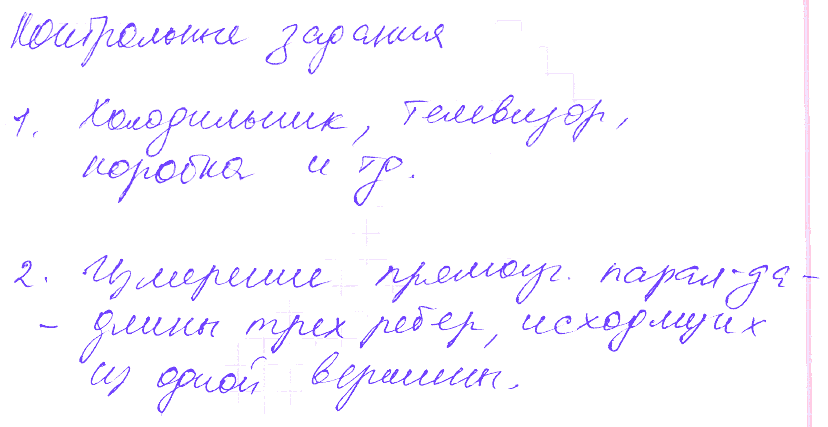 Контрольные задания
1. Холодильник, телевизор,
коробка и тд.
2. Измерение прямоуг. парал-да -
- длины трех ребер, исходящих
из одной вершины.